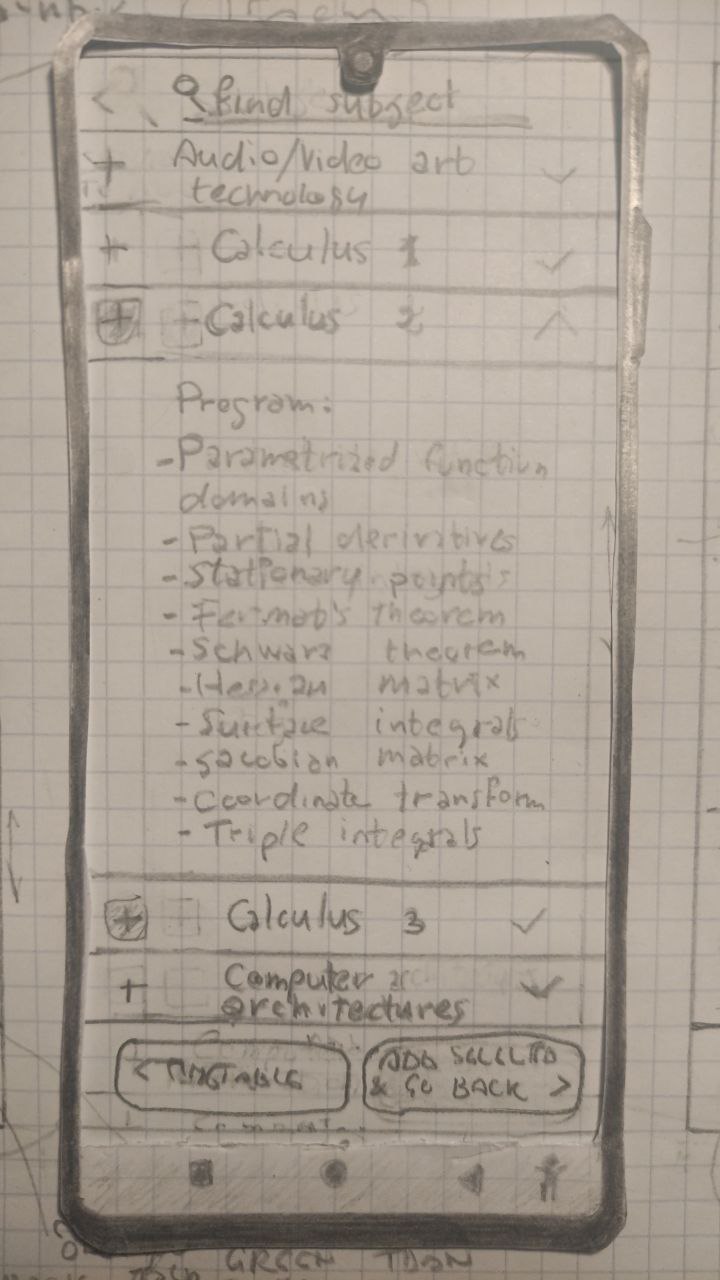 < Find subject
+ Audio/Video art
technology
+ Calculus 1
+ Calculus 2
Program:
-Parametrized function
domains
- Partial derivatives
- Stationary points
- Fermat's theorem
- Schwarz theorem
- Hessian matrix
- Surface integrals
- Jacobian matrix
- Coordinate transform
- Triple integrals
+ Calculus 3
+ Computer
architectures
< TIMETABLE
ADD SELECTED
& GO BACK >
GREEN